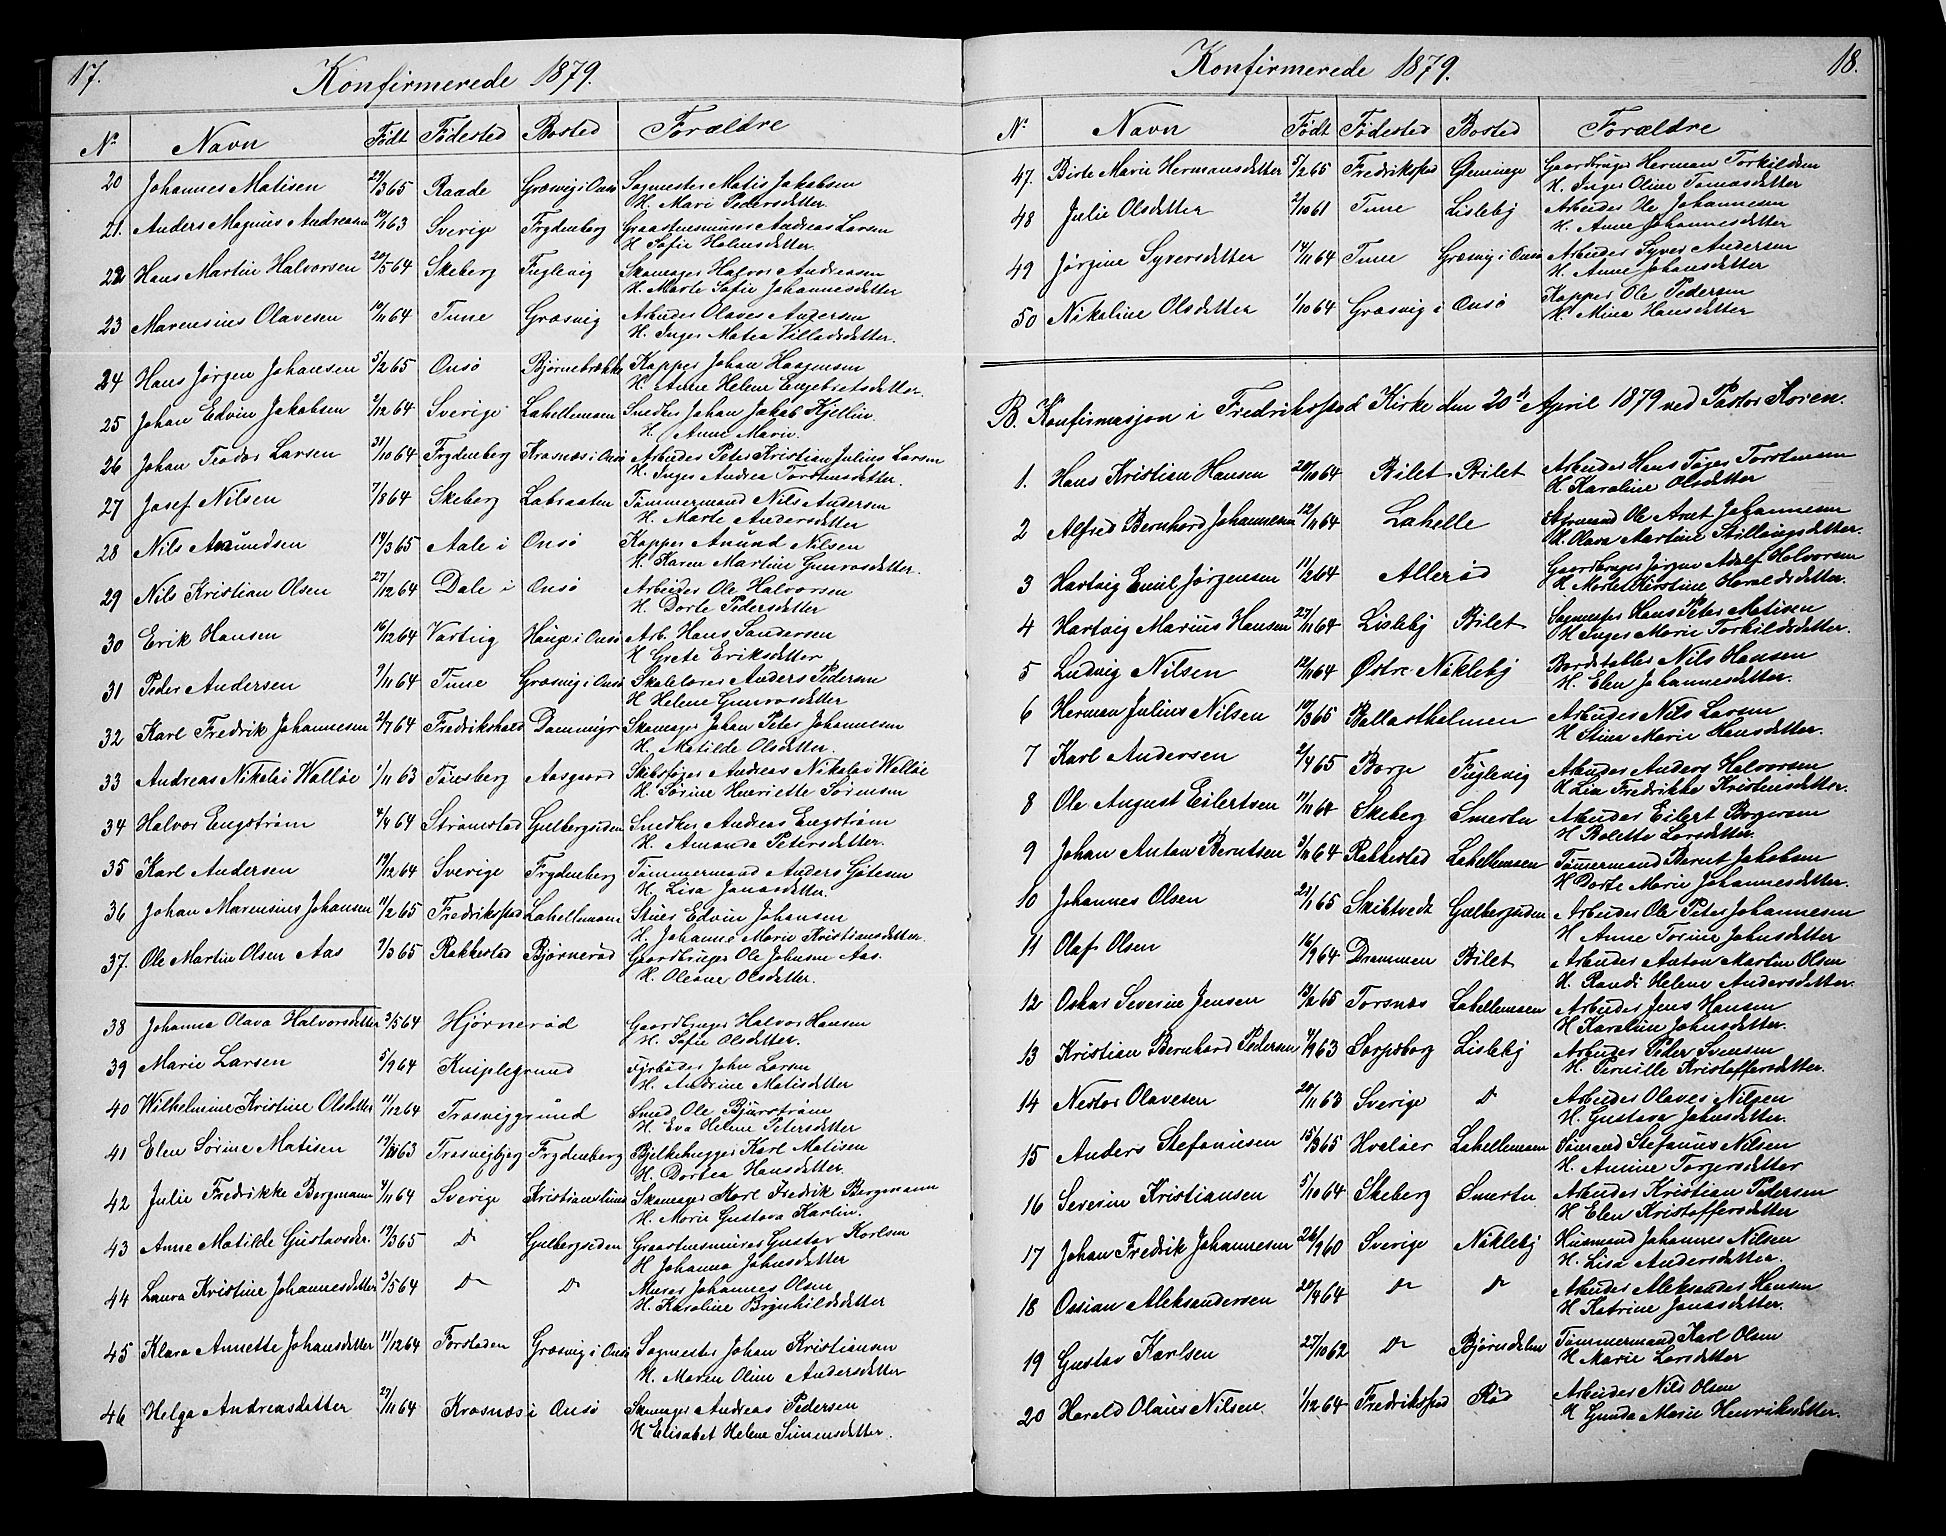 17.
Konfirmerede 1879.
No Navn Født Fødested Bosted Forældre
20 Johannes Matisen 29/3 65 Raade Græsvig i Onsø Sagmester Matis Jakobsen
H. Mari Pedersdetter.
21. Anders Magnus Andreasen 63 Sverige Frydenberg Graastensmurer Andreas Larsen
H. Sofie Holmsdetter.
22 Hans Martin Halvorsen 5 64 Skeberg Fuglevig Skomager Halvor Andreasen
H. Marte Sofie Johannesdetter
23 Marensius Olavesen 12/11 64 Tune Græsvig Arbeider Olaves Andersen
H. Inger Matea Villadsdetter.
24 Hans Jørgen Johansen 5/2 65 Onsø Bjørnebrække Kapper Johan Haagensen
H. Anne Helene Engebretsdetter.
25 Johan Edvin Jakobsen 12 64 Sverige Lahellemoen Snedker Johan Jakob Kjellin.
H. Anne Marie.
26 Johan Teodor Larsen 31/10 64 Frydenberg Krosnæs i Onsø Arbeider Peter Kristian Julius Larsen
H. Inger Andrea Torstensdetter.
27 Josef Nilsen 7/8 64 Skeberg Labraaten Tømmermand Nils Andersen
H. Marte Andersdetter
28 Nils Amundsen 19/3 65 Aale i Onsø Kapper Amund Nilsen
H. Karen Martine Gunrosdetter.
29 Nils Kristian Olsen 27/12 64 Dale i Onsø Arbeider Ole Halvorsen
H. Dorte Pedersdetter
30 Erik Hansen 16/12 64 Varteig Hauge i Onsø Arb. Hans Sandersen
H Grete Eriksdetter
31 Peder Andersen 11 64 Tune Græsvig i Onsø Skolelærer Anders Pedersen
H Helene Gunrosdetter
32 Karl Fredrik Johannesen 2/7 64 Fredrikshald Dammyr Skomager Johan Peter Johannesen
H. Matilde Olsdetter.
33 Andreas Nikolai Walløe 1/11 63 Tønsberg Aasgaard Skibsfører Andreas Nikolai Walløe
H. Sørine Henriette Sørensen
34 Halvor Engstrøm 4/4 64 Strømstad Gulbergsiden Snedker Andreas Engstrøm
H. Amanda Petersdetter.
35 Karl Andersen 19/12 64 Sverige Frydenberg Tømmermand Anders Gøtesen
H. Lisa Jonasdetter.
36 Johan Marensius Johansen 11/2 65 Fredriksstad Lahellemoen Stuer Edvin Johansen
H. Johanne Marie Kristiansdetter.
37. Ole Martin Olsen Aas 7/3 65 Rakkestad Bjørnerød Gaardbruger Ole Johnsen Aas.
H. Oleane Olsdetter.
38 Johanna Olava Halvorsdetter 5 64 Hjørnerød Gaardbruger Halvor Hansen
H. Sofie Olsdetter.
39 Marie Larsen 5/9 64 Kniplegrund Fyrbøder John Larsen
H. Andrine Matisdetter
40 Wilhelmine Kristine Olsdetter 11/12 64 Trosviggrund Smed Ole Bjurstrøm
H. Eva Helene Petersdetter
41 Elen Sørine Matisen 63 Trosvigbjerg Frydenberg Bjelkehugger Karl Matisen
H. Dortea Hansdetter.
42 Julie Fredrikke Bergmann 4/11 64 Sverige Kristianslund Skomager Karl Fredrik Bergmann
H. Marie Gustava Karlin.
43 Anne Matilde Gustavsdr. 19/3 65 Do Gulbergsiden Graastensmurer Gustav Karlsen
H Johanna Johnsdetter
44 Laura Kristine Johannesdetter 3/5 64 Do Do Murer Johannes Olsen
H. Karoline Brynhildsdetter
45 Klara Annette Johansdetter 11/12 64 Forstaden Græsvig i Onsø Sagmester Johan Kristiansen
H. Maren Oline Andersdetter
46 Helga Andreasdetter 27/11 64 Krosnæs i Onsø Skomager Andreas Pedersen
H Elisabet Helene Simensdetter.
18.
Konfirmerede 1879.
No Navn Født Fødested Bosted Forældre
47. Birte Marie Hermansdetter 5/2 65 Fredriksstad Glemmige Gaardbruger Herman Torkildsen
H. Inger Oline Tomasdetter
48 Julie Olsdetter 2/10 61 Tune Lisleby Arbeider Ole Johannesen
H. Anne Johannesdetter
49 Jørgine Syversdetter 14/11 64 Tune Græsvig i Onsø Arbeider Syver Andersen
H. Anne Johansdetter
50 Nikoline Olsdetter 1/10 64 Græsvig i Onsø Kapper Ole Pedersen
H. Mina Hansdetter
B. Konfirmasjon i Fredriksstad Kirke den 20de April 1879 ved Pastor Koren.
1. Hans Kristian Hansen 20/10 64 Bilet Bilet Arbeider Hans Tøger Torstensen
H Karoline Olsdetter
2 Alfred Bernhard Johannesen 12/11 64 Lahelle Styrmand Ole Aret Johannesen
H. Olava Martine Stillingsdetter.
3 Hartvig Emil Jørgensen 11/2 64 Allerød Gaardbruger Jørgen Adolf Halvorsen
H Marte Kirstine Haraldsdetter.
4 Hartvig Marius Hansen 27/11 64 Lisleby Bilet Sagmester Hans Peter Matisen
H Inger Marie Torkildsdetter.
5 Ludvig Nilsen 12/11 64 Østre Nøkleby Bordstabler Nils Hansen
H. Elen Johannesdetter.
6 Herman Julius Nilsen 17/3 65 Ballastholmen Arbeider Nils Larsen
H Stine Marie Hansdetter.
7 Karl Andersen 2/4 65 Borge Fuglevig Arbeider Anders Halvorsen
H Lea Fredrikke Kristensdetter.
8 Ole August Eilertsen 12/11 64 Skeberg Smertu Arbeider Eilert Borgersen
H Bolette Larsdetter.
9 Johan Anton Berntsen 3/11 64 Rakkestad Lahellemoen Tømmermand Bernt Jakobsen
H Dorte Marie Johannesdetter.
10 Johannes Olsen 21/1 65 Skibtvedt Gulbergsiden Arbeider Ole Peter Johannesen
H Anne Torine Johnsdetter
11 Olaf Olsen 16/9 64 Drammen Bilet Arbeider Anton Martin Olsen
H. Randi Helene Andersdetter.
12 Oskar Severin Jensen 65 Torsnæs Lahellemoen Arbeider Jens Hansen
H Karoline Johnsdetter.
13 Kristian Bernhard Pedersen 4/9 63 Sarpsborg Lisleby Arbeider Peder Svensen
H. Pernille Kristoffersdetter.
14 Nestor Olavesen 20/11 63 Sverige Do Arbeider Olaves Nilsen
H. Gustava Johnsdetter.
15 Anders Stefanusen 15/3 65 Hvaløer Lahellemoen Sømand Stefanus Nilsen
H. Annine Torgersdetter
16 Severin Kristiansen 5/10 64 Skeberg Smertu Arbeider Kristian Pedersen
H Elen Kristoffersdetter
17 Johan Fredrik Johannesen 26/9 60 Sverige Nøkleby Husmand Johannes Nilsen
H. Lisa Andersdetter.
18 Ossian Aleksandersen 20/4 64 Do Do Arbeider Aleksander Hansen
H Katrine Jonasdetter.
19 Gustav Karlsen 27/10 62 Do Bjørndalen Tømmermand Karl Olsen
H Marie Larsdetter
20 Harald Olaus Nilsen. 1/12 64 Fredriksstad Rød Arbeider Nils Olsen
H Gunda Marie Henriksdetter.